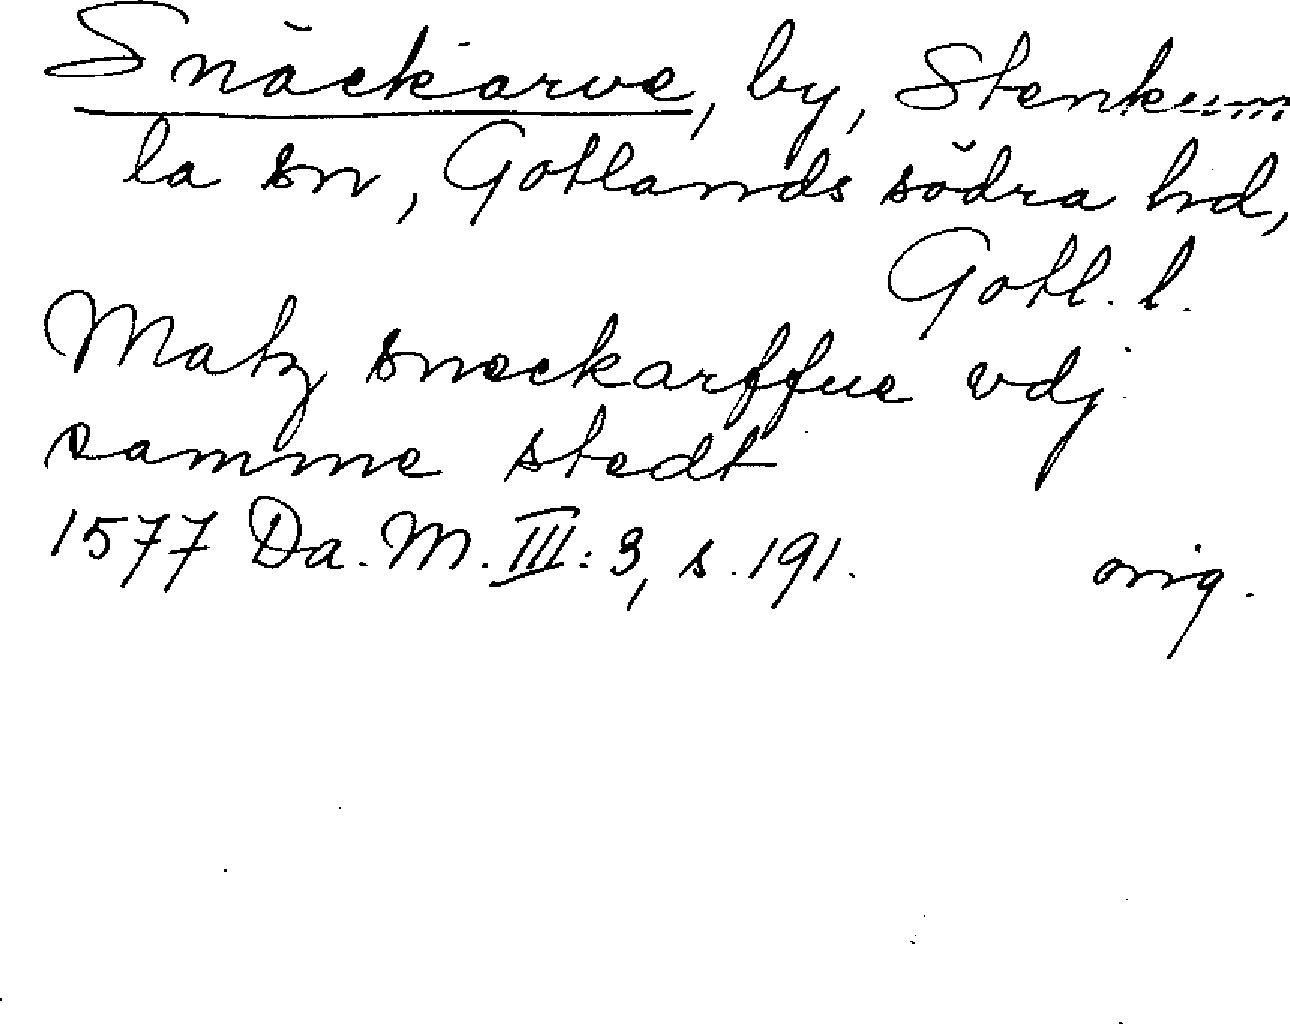 Snäckarve, by, Stenkum
la sn, Gotlands södra hd,
Gotl. l.
Matz sneckarffue vdj
samme stedt
1577 Da. M. III: 3, s. 191. orig.